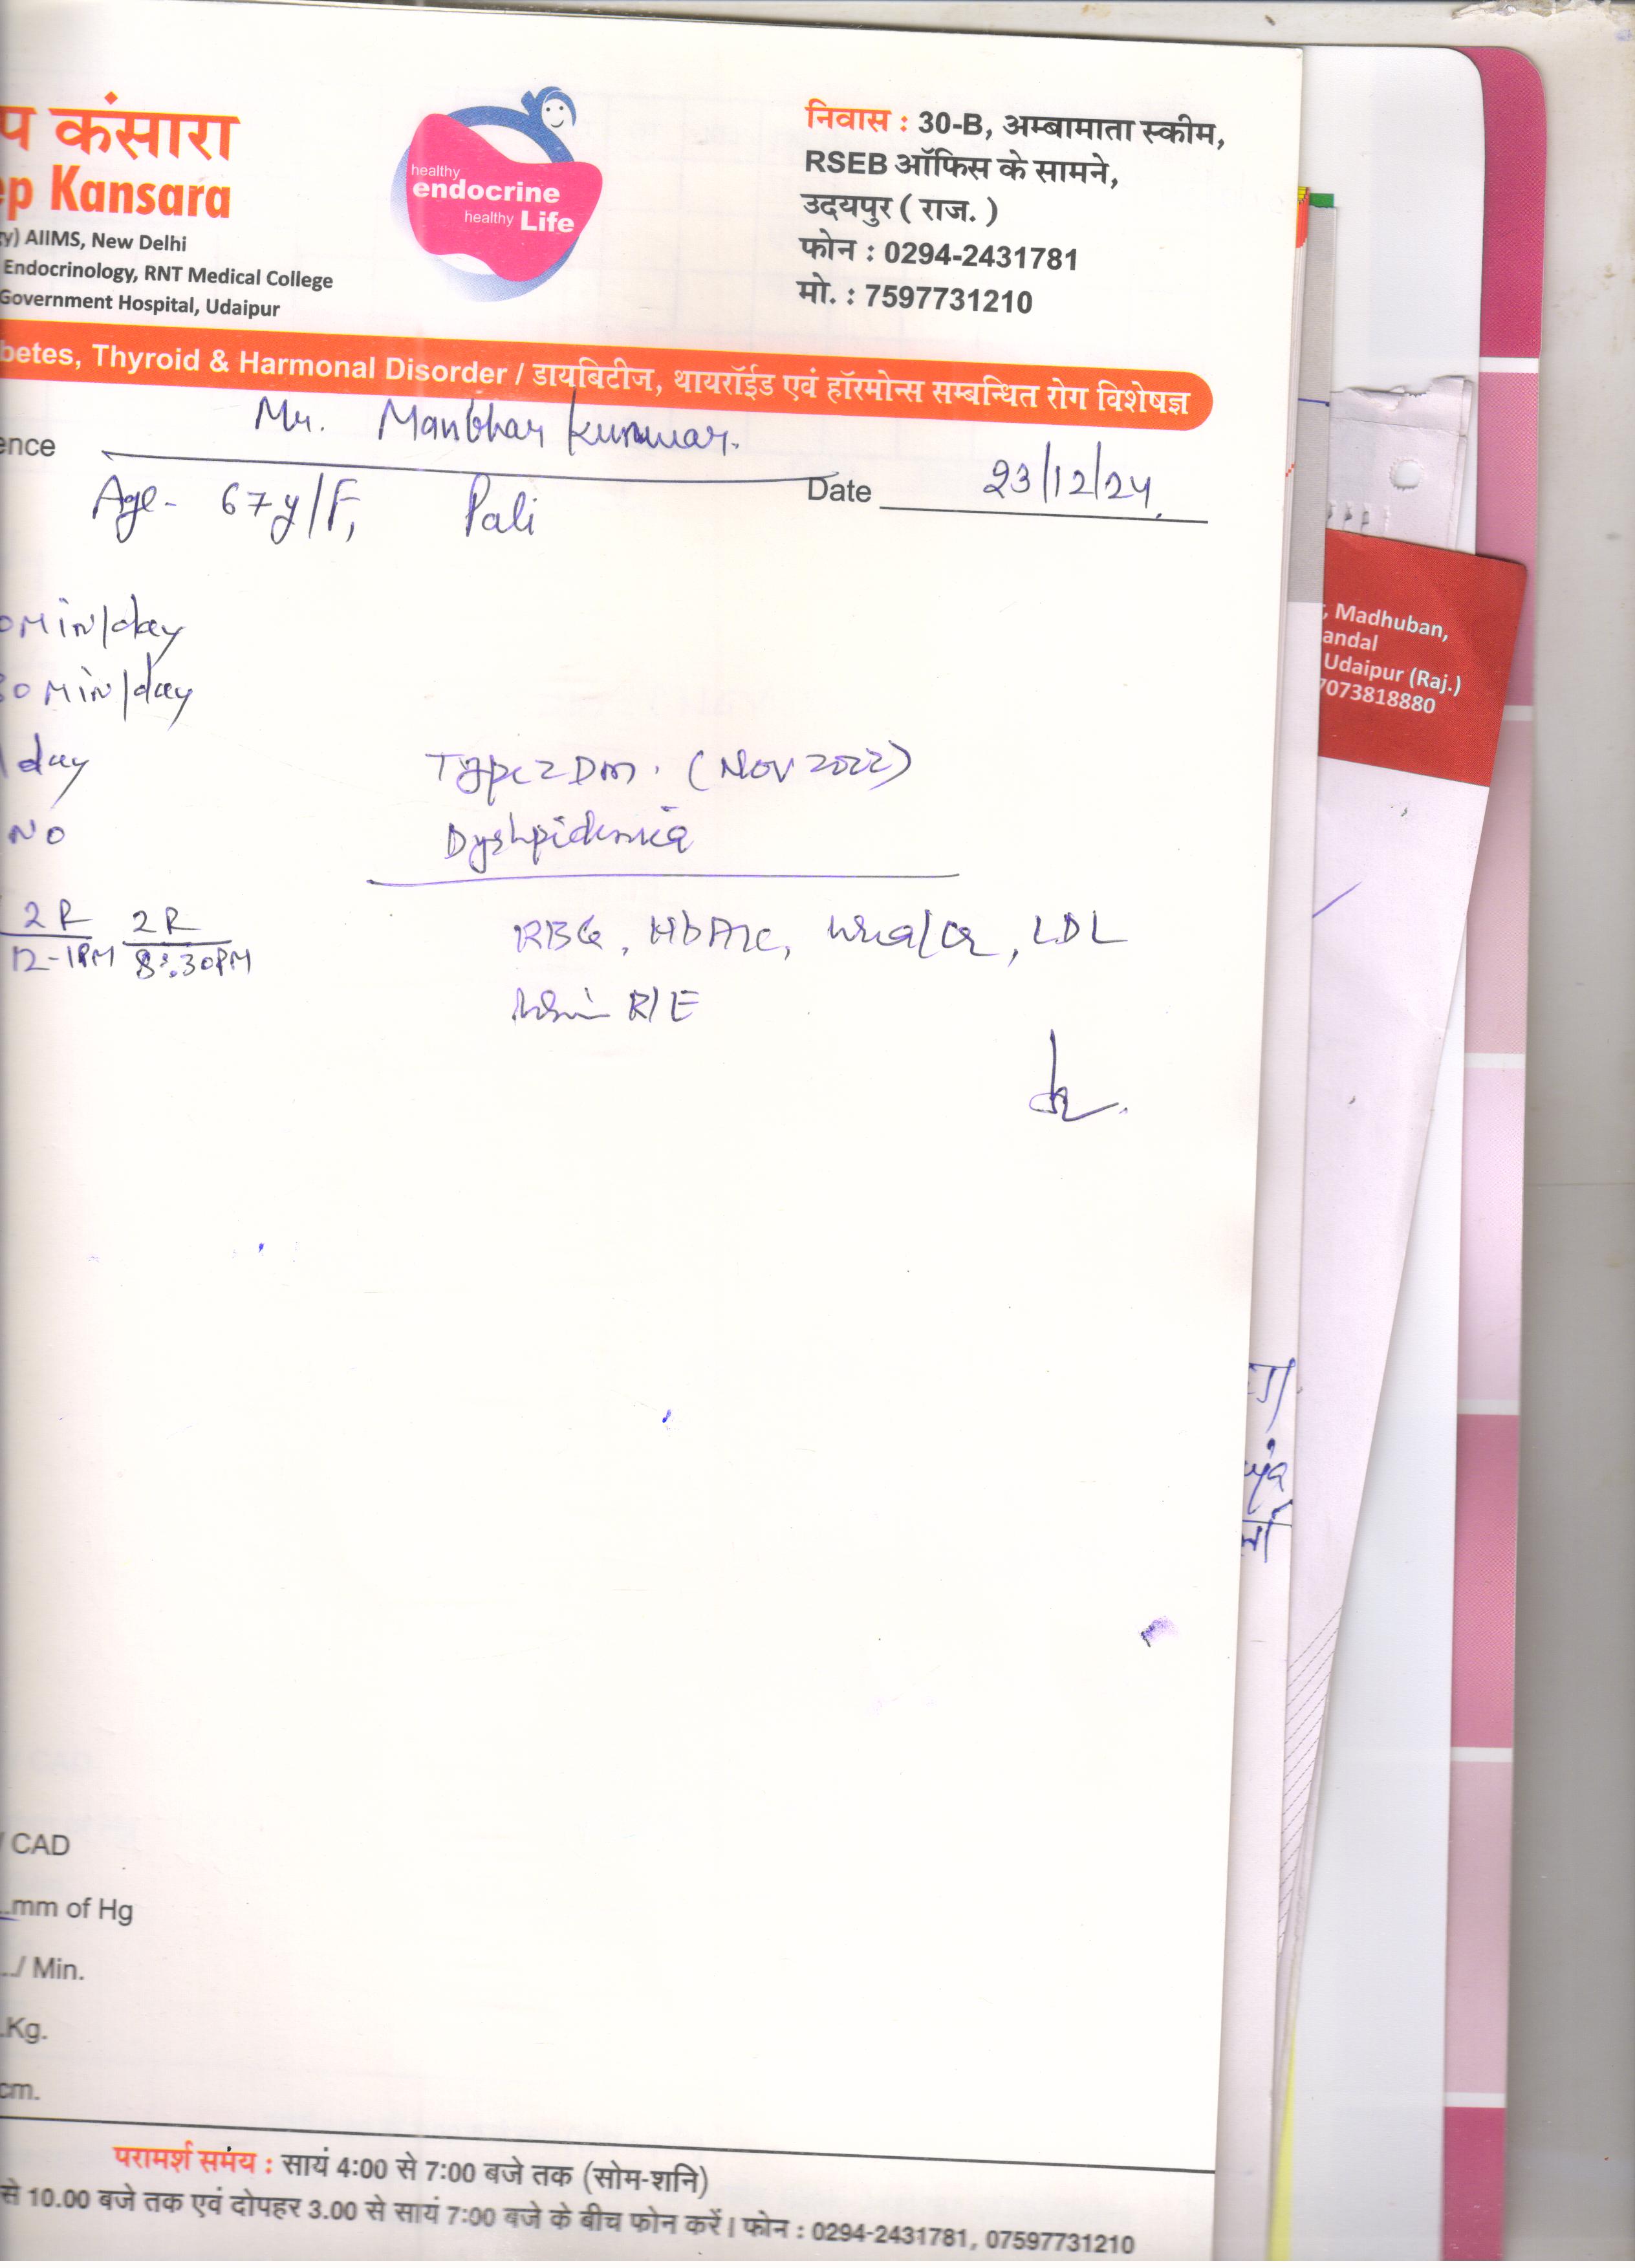 प कंसारा
ep Kansara
y) AIIMS, New Delhi
Endocrinology, RNT Medical College
Government Hospital, Udaipur
healthy
endocrine
healthy Life
निवास : 30-B, अम्बामाता स्कीम,
RSEB ऑफिस के सामने,
उदयपुर ( राज. )
फोन : 0294-2431781
मो. : 7597731210
betes, Thyroid & Harmonal Disorder / डायबिटीज, थायरॉईड एवं हॉरमोन्स सम्बन्धित रोग विशेषज्ञ
ence Mr. Manbhar Kunwar.
Date 23/12/24
Age- 67y/F, Pali
0 Min/day
30 Min/day
/day
NO
2 R 2 R
12-1PM 8:30PM
Type 2 Dm. (Nov 2022)
Dyslipidemia
RBG, HbA1c, Urea/Cr, LDL
Urine R/E
, Madhuban,
andal
Udaipur (Raj.)
7073818880
/ CAD
..mm of Hg
../ Min.
.Kg.
cm.
परामर्श समय : सायं 4:00 से 7:00 बजे तक (सोम-शनि)
से 10.00 बजे तक एवं दोपहर 3.00 से सायं 7:00 बजे के बीच फोन करें। फोन : 0294-2431781, 07597731210